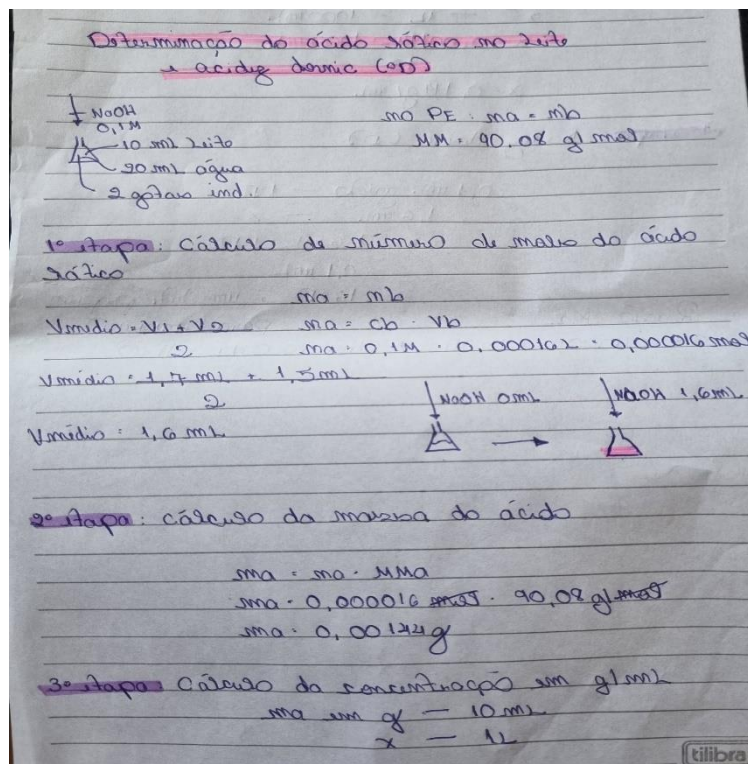 Determinação do ácido lático no leite
e acidez dornic (ºD)
NaOH
0,1M
10 mL leite
20 mL água
2 gotas ind.
no PE: na = nb
MM = 90,08 g/mol
1º etapa: Cálculo de número de mols do ácido
lático
na = nb
Vmédio = V1 + V2
2
na = cb . Vb
na = 0,1M . 0,00016L = 0,000016 mol
Vmédio = 1,7 mL + 1,5 mL
2
Vmédio = 1,6 mL
NaOH 0mL
NaOH 1,6mL
2º etapa: cálculo da massa do ácido
ma = na . MMa
ma = 0,000016 mol . 90,08 g/mol
ma = 0,00144g
3º etapa: Cálculo da concentração em g/mL
ma em g — 10 mL
x — 1L
tilibra